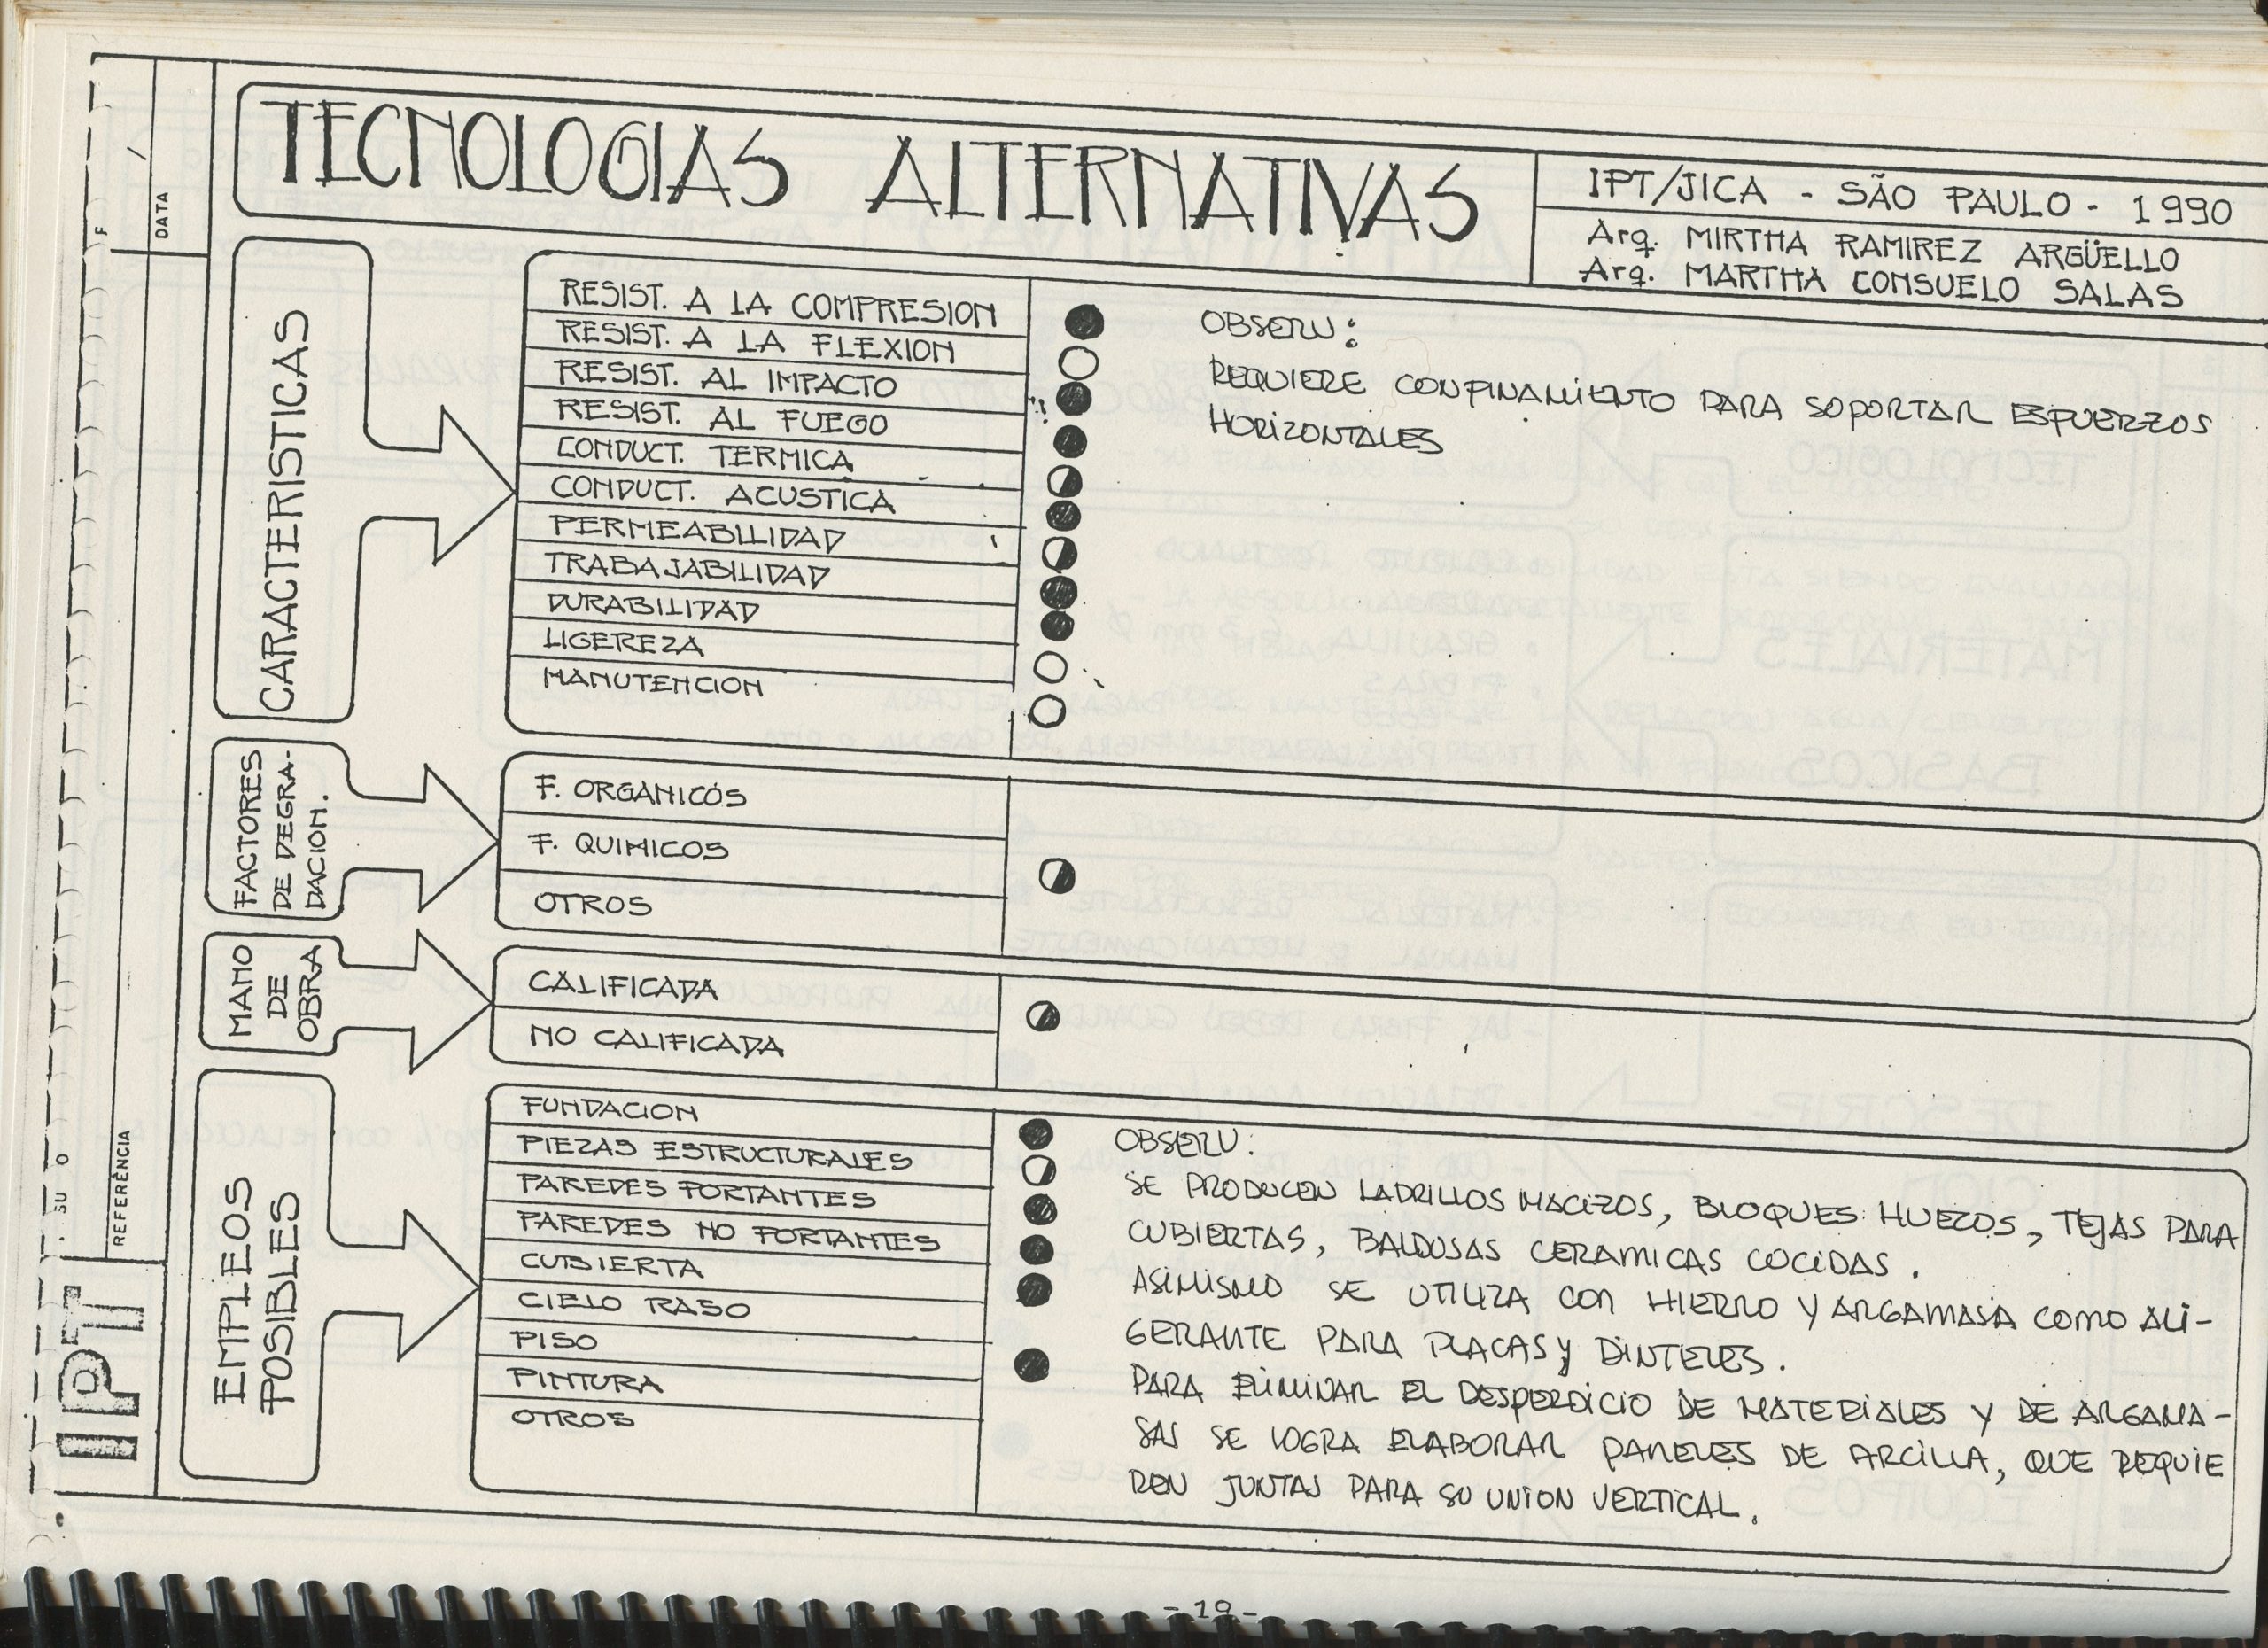 TECNOLOGIAS ALTERNATIVAS
IPT/JICA - SÃO PAULO - 1990
Arq. MIRTHA RAMIREZ ARGÜELLO
Arq. MARTHA CONSUELO SALAS
DATA
REFERÊNCIA
IPT
CARACTERISTICAS
RESIST. A LA COMPRESION
RESIST. A LA FLEXION
RESIST. AL IMPACTO
RESIST. AL FUEGO
CONDUCT. TERMICA
CONDUCT. ACUSTICA
PERMEABILIDAD
TRABAJABILIDAD
DURABILIDAD
LIGEREZA
MANUTENCION
OBSERV:
REQUIERE CONFINAMIENTO PARA SOPORTAR ESFUERZOS
HORIZONTALES
FACTORES
DE DEGRA-
DACION.
F. ORGANICOS
F. QUIMICOS
OTROS
MANO
DE
OBRA
CALIFICADA
NO CALIFICADA
EMPLEOS
POSIBLES
FUNDACION
PIEZAS ESTRUCTURALES
PAREDES PORTANTES
PAREDES NO PORTANTES
CUBIERTA
CIELO RASO
PISO
PINTURA
OTROS
OBSERV:
SE PRODUCEN LADRILLOS MACIZOS, BLOQUES HUECOS, TEJAS PARA
CUBIERTAS, BALDOSAS CERAMICAS COCIDAS.
ASIMISMO SE UTILIZA CON HIERRO Y ARGAMASA COMO ALI-
GERANTE PARA PLACAS Y DINTELES.
PARA ELIMINAR EL DESPERDICIO DE MATERIALES Y DE ARGAMA-
SAS SE LOGRA ELABORAR PANELES DE ARCILLA, QUE REQUIE
REN JUNTAS PARA SU UNION VERTICAL.
- 19 -